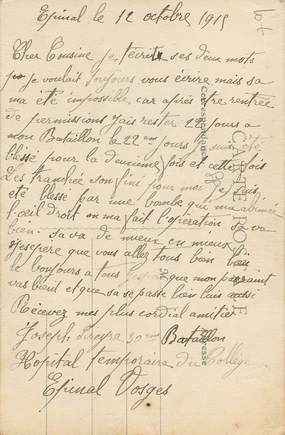 Epinal le 12 octobre 1915
Cher Cousine je técrit ses deux mots
je voulait toujours vous écrire mais sa
ma été impossible car après être rentrée
de permissions jais rester 22 jours a
mon Bataillon le 22me jours j suis été
blessé pour la deuxieme fois et cette fois
Les tranchée son fini pour moi je suis
été blessé par une bombe que ma abimée
l'oeil droit on ma fait l'opération sa va
bien sa va de mieux en mieux
Jesespère que vous allez tous bien bien
le bonjours a tous que mon
vas bient et que sa se passe bien luis aussi
Recevez mes plus cordial amitier
Joseph 30me Bataillon
Hopital temporaire du Collège
Epinal Vosges
CARTE POSTALE
Correspondance
Adresse